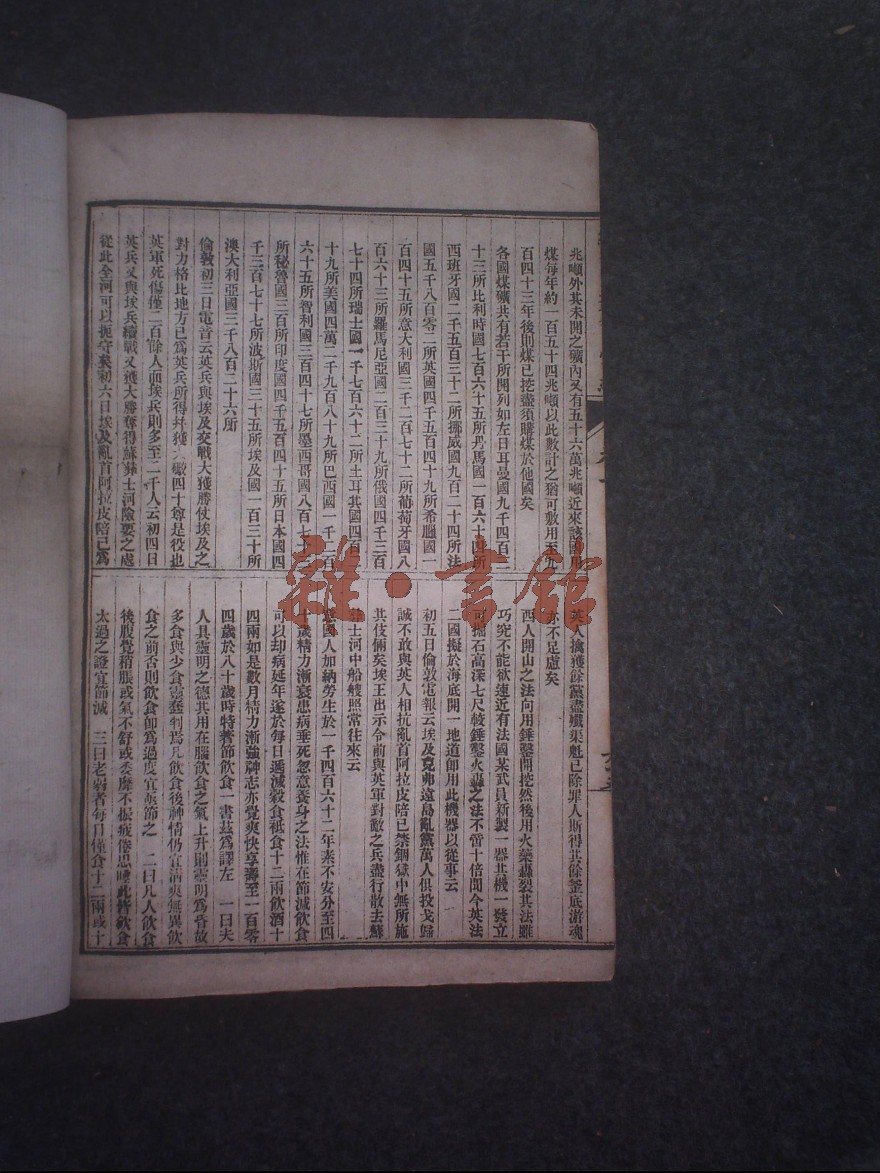 兆噸外其未開之礦內又有五十六萬兆噸近來該國用
煤每年約一百五十四兆噸以此數計之猶可敷用至九
百四十三年後則煤已挖盡須購煤於他國矣
各國煤礦共有若干所開列如左日耳曼國九千四百二
十三所比利時國七百六十五所丹馬國一百六十四所
西班牙國二千五百三十二所挪威國九百二十四所法
國五千八百零二所英國四千五百四十九所希臘國一
百四十五所意大利國三千二百七十二所葡萄牙國八
百六十三所羅馬尼亞國二百三十九所俄國四千三百
七十四所瑞士國一千七百六十二所土耳其國四百
十九所美國四萬二千九百八十九所巴西國一千二百
六十五所智利國三百四十七所墨西哥國八百七十
所秘魯國三百所印度國四千五百四十五所日本國四
千三百七十七所波斯國三十五所埃及國一百三十所
澳大利亞國三千八百二十六所
倫敦初三日電音云英兵與埃及交戰大獲勝仗埃及之
對力格比地方已爲英兵所得幷獲大礮四十尊是役也
英軍死傷僅二百餘人而埃兵則多至二千人云初四日
英兵又與埃兵續戰又獲大勝奪得蘇彝士河險要之處
從此全河可以扼守矣初六日埃及亂首阿拉皮陪已爲
英人擒獲餘黨盡殲渠魁已除罪人斯得其餘釜底游魂
亦不足慮矣
西人開山之法向用錘鑿開挖然後用火藥轟裂其法雖
巧究不能欲速近有法國某武員新製一器其機一發立
可掘石高深七尺較錘鑿火轟之法不啻十倍聞今英法
二國擬於海底開一地道卽用此機器以從事云
初五日倫敦電報云埃及堯弗遠島亂黨萬人俱投戈歸
誠不敢與英人相抗亂首阿拉皮陪已禁錮獄中無所施
其伎倆矣埃王出示令前與英軍對敵之兵盡行散去蘇
士河中船艘照常往來云
國人加納勞生於一千四百六十二年素不安分至四
十歲精力漸衰患病垂死忽意養身之法惟在節減飲食
可以却病延年遂於每日遞減穀食祇食十二兩飲酒十
四兩如是數月精力漸強神志亦覺爽快享壽至一百零
四歲於八十歲時特著節飲食一書茲爲譯左　一曰夫
人具靈明之德其用在腦飲食之氣上升則靈明爲昏故
多食與少食靈蠢判焉凡飲食後神情仍宜清爽無異飲
食之前否則飲食卽爲過度宜亟節之　二曰凡人飲食
後腹覺稍脹或氣不舒或委靡不振疲倦思睡此皆飲食
太過之證宜節減　三曰老弱者每日僅食十二兩或十
雜·書館